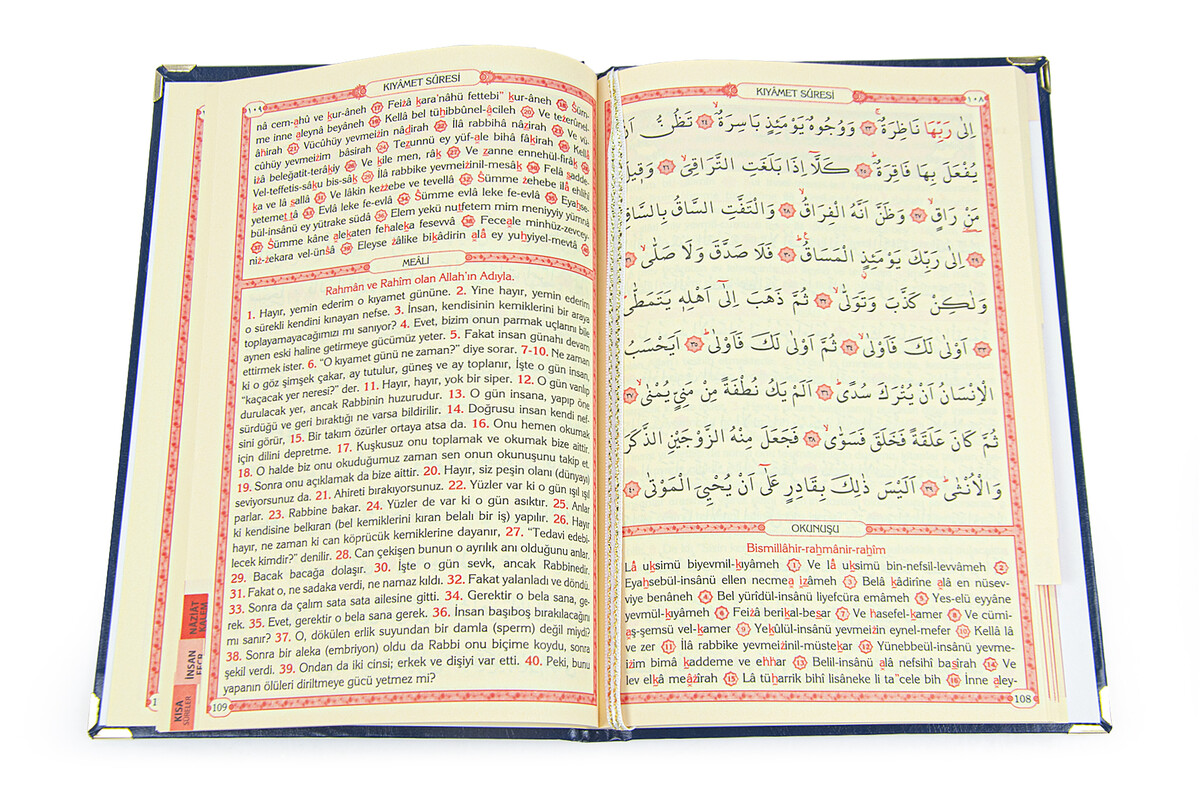 KIYÂMET SÛRESİ
١٠٨
اِلٰى رَبِّهَا نَاظِرَةٌۚ ﴿٢٣﴾ وَوُجُوهٌ يَوْمَئِذٍ بَاسِرَةٌۙ ﴿٢٤﴾ تَظُنُّ اَنْ
يُفْعَلَ بِهَا فَاقِرَةٌۜ ﴿٢٥﴾ كَلَّٓا اِذَا بَلَغَتِ التَّرَاقِيَۙ ﴿٢٦﴾ وَق۪يلَ
مَنْ رَاقٍۙ ﴿٢٧﴾ وَظَنَّ اَنَّهُ الْفِرَاقُۙ ﴿٢٨﴾ وَالْتَفَّتِ السَّاقُ بِالسَّاقِ
﴿٢٩﴾ اِلٰى رَبِّكَ يَوْمَئِذٍ الْمَسَاقُۜ ﴿٣٠﴾ فَلَا صَدَّقَ وَلَا صَلّٰىۙ
وَلٰكِنْ كَذَّبَ وَتَوَلّٰىۙ ﴿٣٢﴾ ثُمَّ ذَهَبَ اِلٰٓى اَهْلِه۪ يَتَمَطّٰىۜ
﴿٣٣﴾ اَوْلٰى لَكَ فَاَوْلٰىۙ ﴿٣٤﴾ ثُمَّ اَوْلٰى لَكَ فَاَوْلٰىۜ ﴿٣٥﴾ اَيَحْسَبُ
الْاِنْسَانُ اَنْ يُتْرَكَ سُدًىۜ ﴿٣٦﴾ اَلَمْ يَكُ نُطْفَةً مِنْ مَنِيٍّ يُمْنٰىۙ ﴿٣٧﴾
ثُمَّ كَانَ عَلَقَةً فَخَلَقَ فَسَوّٰىۙ ﴿٣٨﴾ فَجَعَلَ مِنْهُ الزَّوْجَيْنِ الذَّكَرَ
وَالْاُنْثٰىۜ ﴿٣٩﴾ اَلَيْسَ ذٰلِكَ بِقَادِرٍ عَلٰٓى اَنْ يُحْيِيَ الْمَوْتٰى ﴿٤٠﴾
OKUNUŞU
Bismillâhir-rahmânir-rahîm
Lâ uksimü biyevmil-kıyâmeh 1 Ve lâ uksimü bin-nefsil-levvâmeh 2
Eyahsebül-insânü ellen necmea izâmeh 3 Belâ kâdirîne alâ en nüsev-
viye benâneh 4 Bel yürîdül-insânü liyefcüra emâmeh 5 Yes-elü eyyâne
yevmül-kıyâmeh 6 Feizâ berikal-besar 7 Ve hasefel-kamer 8 Ve cümi-
aş-şemsü vel-kamer 9 Yekûlül-insânü yevmeizin eynel-mefer 10 Kellâ lâ
ve zer 11 İlâ rabbike yevmeizinil-müstekar 12 Yünebbeül-insânü yevme-
izim bimâ kaddeme ve ehhar 13 Belil-insânü alâ nefsihî basîrah 14 Ve
lev elkâ meâzîrah 15 Lâ tüharrik bihî lisâneke li ta"cele bih 16 İnne aley-
108
KIYÂMET SÛRESİ
١٠٩
nâ cem-ahû ve kur-âneh 17 Feizâ kara'nâhü fettebi" kur-âneh 18 Süm-
me inne aleynâ beyâneh 19 Kellâ bel tühibbûnel-âcileh 20 Ve tezerûnel-
âhirah 21 Vücûhüy yevmeizin nâdirah 22 İlâ rabbihâ nâzirah 23 Ve vü-
cûhüy yevmeizim bâsirah 24 Tezunnü ey yüf-ale bihâ fâkirah 25 Kellâ
izâ beleğatit-terâkıy 26 Ve kîle men, râk 27 Ve zanne ennehül-firâk 28
Vel-teffetis-sâku bis-sâk 29 İlâ rabbike yevmeizinil-mesâk 30 Felâ sadde-
ka ve lâ sallâ 31 Ve lâkin kezzebe ve tevellâ 32 Sümme zehebe ilâ ehlihî
yetemet tâ 33 Evlâ leke fe-evlâ 34 Sümme evlâ leke fe-evlâ 35 Eyahse-
bül-insânü ey yütrake südâ 36 Elem yekü nutfetem mim meniyyiy yümnâ
37 Sümme kâne alekaten fehaleka fesevvâ 38 Feceale minhüz-zevcey-
niz-zekara vel-ünsâ 39 Eleyse zâlike bikâdirin alâ ey yuhyiyel-mevtâ 40
MEÂLİ
Rahmân ve Rahîm olan Allah'ın Adıyla.
1. Hayır, yemin ederim o kıyamet gününe. 2. Yine hayır, yemin ederim
o sürekli kendini kınayan nefse. 3. İnsan, kendisinin kemiklerini bir araya
toplayamayacağımızı mı sanıyor? 4. Evet, bizim onun parmak uçlarını bile
aynen eski haline getirmeye gücümüz yeter. 5. Fakat insan günahı devam
ettirmek ister. 6. "O kıyamet günü ne zaman?" diye sorar. 7-10. Ne zaman
ki o göz şimşek çakar, ay tutulur, güneş ve ay toplanır, İşte o gün insan,
"kaçacak yer neresi?" der. 11. Hayır, hayır, yok bir siper. 12. O gün varılıp
durulacak yer, ancak Rabbinin huzurudur. 13. O gün insana, yapıp öne
sürdüğü ve geri bıraktığı ne varsa bildirilir. 14. Doğrusu insan kendi nef-
sini görür, 15. Bir takım özürler ortaya atsa da. 16. Onu hemen okumak
için dilini depretme. 17. Kuşkusuz onu toplamak ve okumak bize aittir.
18. O halde biz onu okuduğumuz zaman sen onun okunuşunu takip et.
19. Sonra onu açıklamak da bize aittir. 20. Hayır, siz peşin olanı (dünyayı)
seviyorsunuz da. 21. Ahireti bırakıyorsunuz. 22. Yüzler var ki o gün ışıl ışıl
parlar. 23. Rabbine bakar. 24. Yüzler de var ki o gün asıktır. 25. Anlar
ki kendisine belkıran (bel kemiklerini kıran belalı bir iş) yapılır. 26. Hayır
hayır, ne zaman ki can köprücük kemiklerine dayanır, 27. "Tedavi edebi-
lecek kimdir?" denilir. 28. Can çekişen bunun o ayrılık anı olduğunu anlar.
29. Bacak bacağa dolaşır. 30. İşte o gün sevk, ancak Rabbinedir.
31. Fakat o, ne sadaka verdi, ne namaz kıldı. 32. Fakat yalanladı ve döndü.
33. Sonra da çalım sata sata ailesine gitti. 34. Gerektir o bela sana, ge-
rek. 35. Evet, gerektir o bela sana gerek. 36. İnsan başıboş bırakılacağını
mı sanır? 37. O, dökülen erlik suyundan bir damla (sperm) değil miydi?
38. Sonra bir aleka (embriyo) oldu da Rabbi onu biçime koydu, sonra
şekil verdi. 39. Ondan da iki cinsi; erkek ve dişiyi var etti. 40. Peki, bunu
yapanın ölüleri diriltmeye gücü yetmez mi?
109
NAZİAT
KALEM
İNSAN
FECR
KISA
SÛRELER